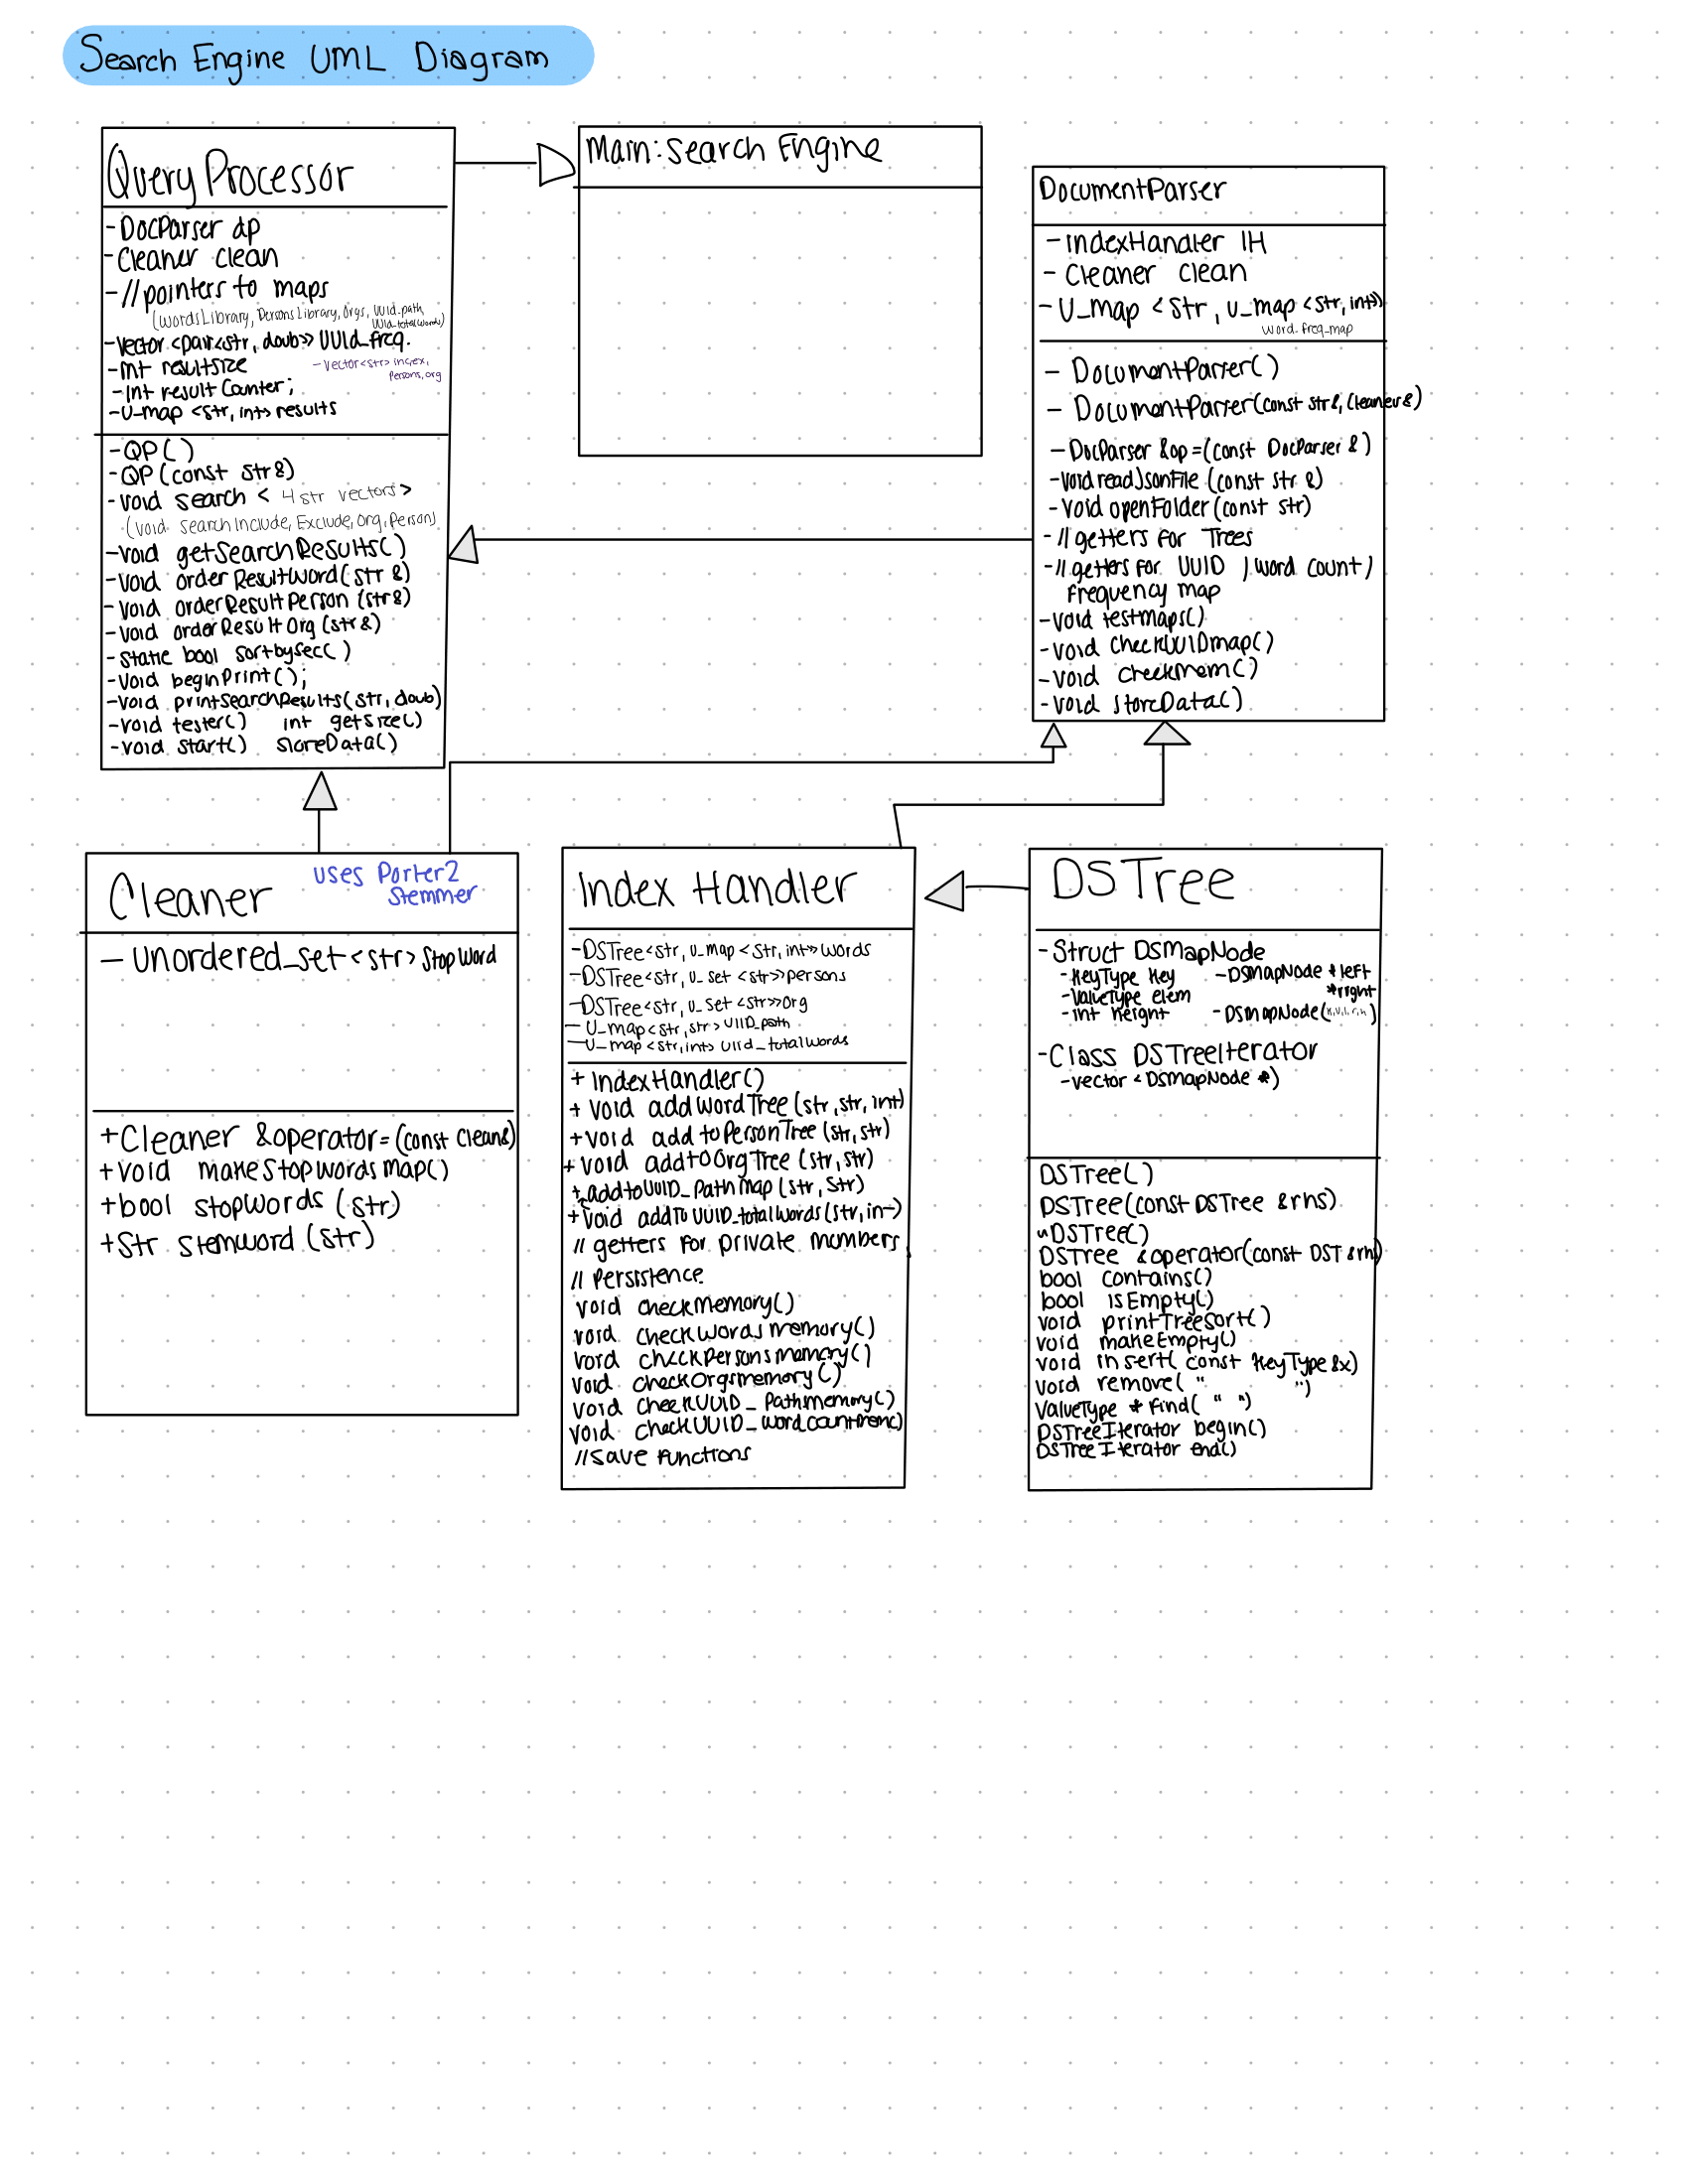 Search Engine UML Diagram
Query Processor
- DocParser dp
- Cleaner clean
- // pointers to maps
(wordsLibrary, PersonsLibrary, Orgs, UUid_path,
UUid_totalwords)
- Vector <pair<str, doub>> UUId_freq.
- Int resultsize
- Vector<str> inc,ex,
Persons, org
- Int result Counter;
- U_map <str, int> results
- QP()
- QP (const str &)
- Void search < 4 str vectors >
(void searchInclude, Exclude, Org, Person)
- Void getSearchResults()
- Void orderResultWord(str &)
- Void orderResultPerson (str &)
- Void orderResultOrg (str &)
- Static bool sortbySec()
- Void beginPrint();
- Void printSearchResults(str, doub)
- Void tester() int getSize()
- Void start() storeData()
Main: Search Engine
DocumentParser
- IndexHandler IH
- Cleaner clean
- U_map <str, u_map <str, int>>
word_freq_map
- DocumentParser()
- DocumentParser(const str &, Cleaner &)
- DocParser &op = (const DocParser &)
- Void readJsonFile (const str &)
- Void openFolder (const str)
- // getters for Trees
- // getters for UUID / word count /
frequency map
- Void testmaps()
- Void checkUUIDmap()
- Void checkMem()
- Void storeData()
Cleaner
uses Porter2
Stemmer
- Unordered_set <str> StopWord
+ Cleaner &operator= (const Clean &)
+ Void makeStopWordsMap()
+ bool stopWords (str)
+ Str stemword (str)
Index Handler
- DSTree <str, u_map <str, int>> words
- DSTree <str, u_set <str>> persons
- DSTree <str, u_set <str>> org
- U_map <str, str> UUID_path
- U_map <str, int> UUid_totalwords
+ IndexHandler()
+ Void addWordTree (str, str, int)
+ Void add toPersonTree (str, str)
+ Void addtoOrgTree (str, str)
+ addtoUUID_PathMap (str, str)
+ Void addToUUID_totalWords (str, in-)
// getters for private members
// Persistence
Void checkMemory()
Void checkWordsMemory()
Void checkPersonsMemory()
Void checkOrgsMemory()
Void checkUUID_PathMemory()
Void checkUUID_WordCountMem()
// Save functions
DSTree
- Struct DSMapNode
- KeyType Key - DSMapNode *left
- ValueType elem *right
- int height - DSMapNode(k,v,l,r,h)
- Class DSTreeIterator
- Vector <DSMapNode *)
DSTree()
DSTree (const DSTree &rhs)
~DSTree()
DSTree &operator(const DST &rh)
bool contains()
bool isEmpty()
Void printTreeSort()
Void makeEmpty()
Void insert( const KeyType &x)
Void remove( " ")
ValueType * Find( " ")
DSTreeIterator begin()
DSTreeIterator end()